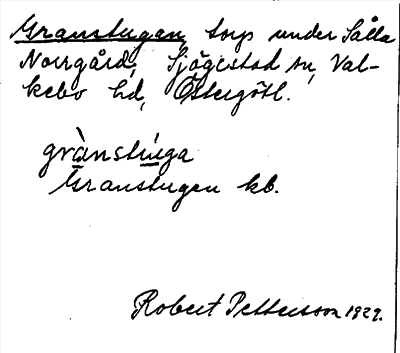 Granstugan, torp under Sålla
Norrgård, Sjögestad sn, Val-
kebo hd, Östergötl.
grànstúga
Granstugan kb.
Robert Petterson 1929.